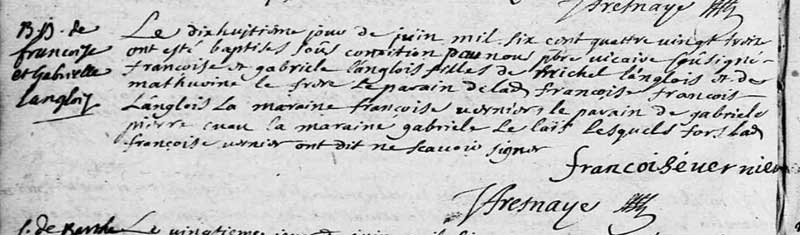 fresnaye
B.B. de
francoise
et Gabrielle
Langloy
Le dixhuitiême jour de juin mil six cent quattre vingt trois
ont esté baptises sous condition par nous pbre vicaire soussigné
francoise et gabriele langlois filles de michel langlois et de
mathurine le frere Le parain de lad francoise francois
Langlois La maraine francoise vernier, le parain de gabriele
pierre la maraine gabriele Le lait Lesquels fors lad
francoise vernier ont dit ne scavoir signer
francoise vernier
fresnaye
Le vingtiême jour de juin mil six